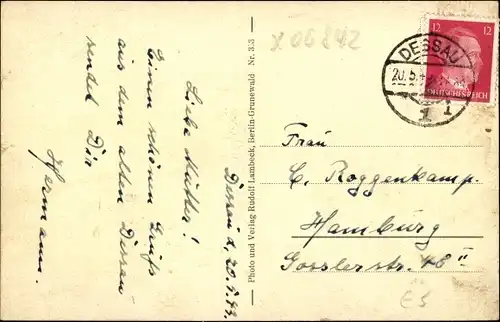 Dessau d. 20.5.42.
Liebe Mutter!
Einen schönen Gruß
aus dem alten Dessau
sendet Dir
Hermann.
Photo und Verlag Rudolf Lambeck, Berlin-Grunewald Nr. 3.5
x 06842
DESSAU
20.5.4
1
12 12
DEUTSCHES REICH
Frau
C. Roggenkamp.
Hamburg
Gosslerstr. 46 II
ES